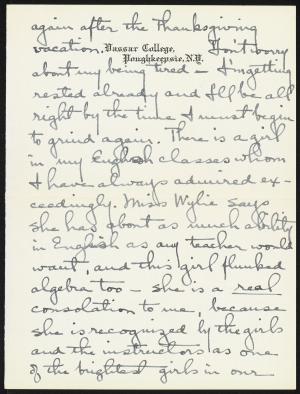 again after the Thanksgiving
vacation. Don't worry
Vassar College,
Poughkeepsie, N.Y.
about my being tired – I'm getting
rested already and I'll be all
right by the time I must begin
to grind again. There is a girl
in my English classes whom
I have always admired ex-
ceedingly. Miss Wylie says
she has about as much ability
in English as any teacher would
want, and this girl flunked
algebra too – she is a real
consolation to me, because
she is recognized by the girls
and the instructors as one
of the brightest girls in our